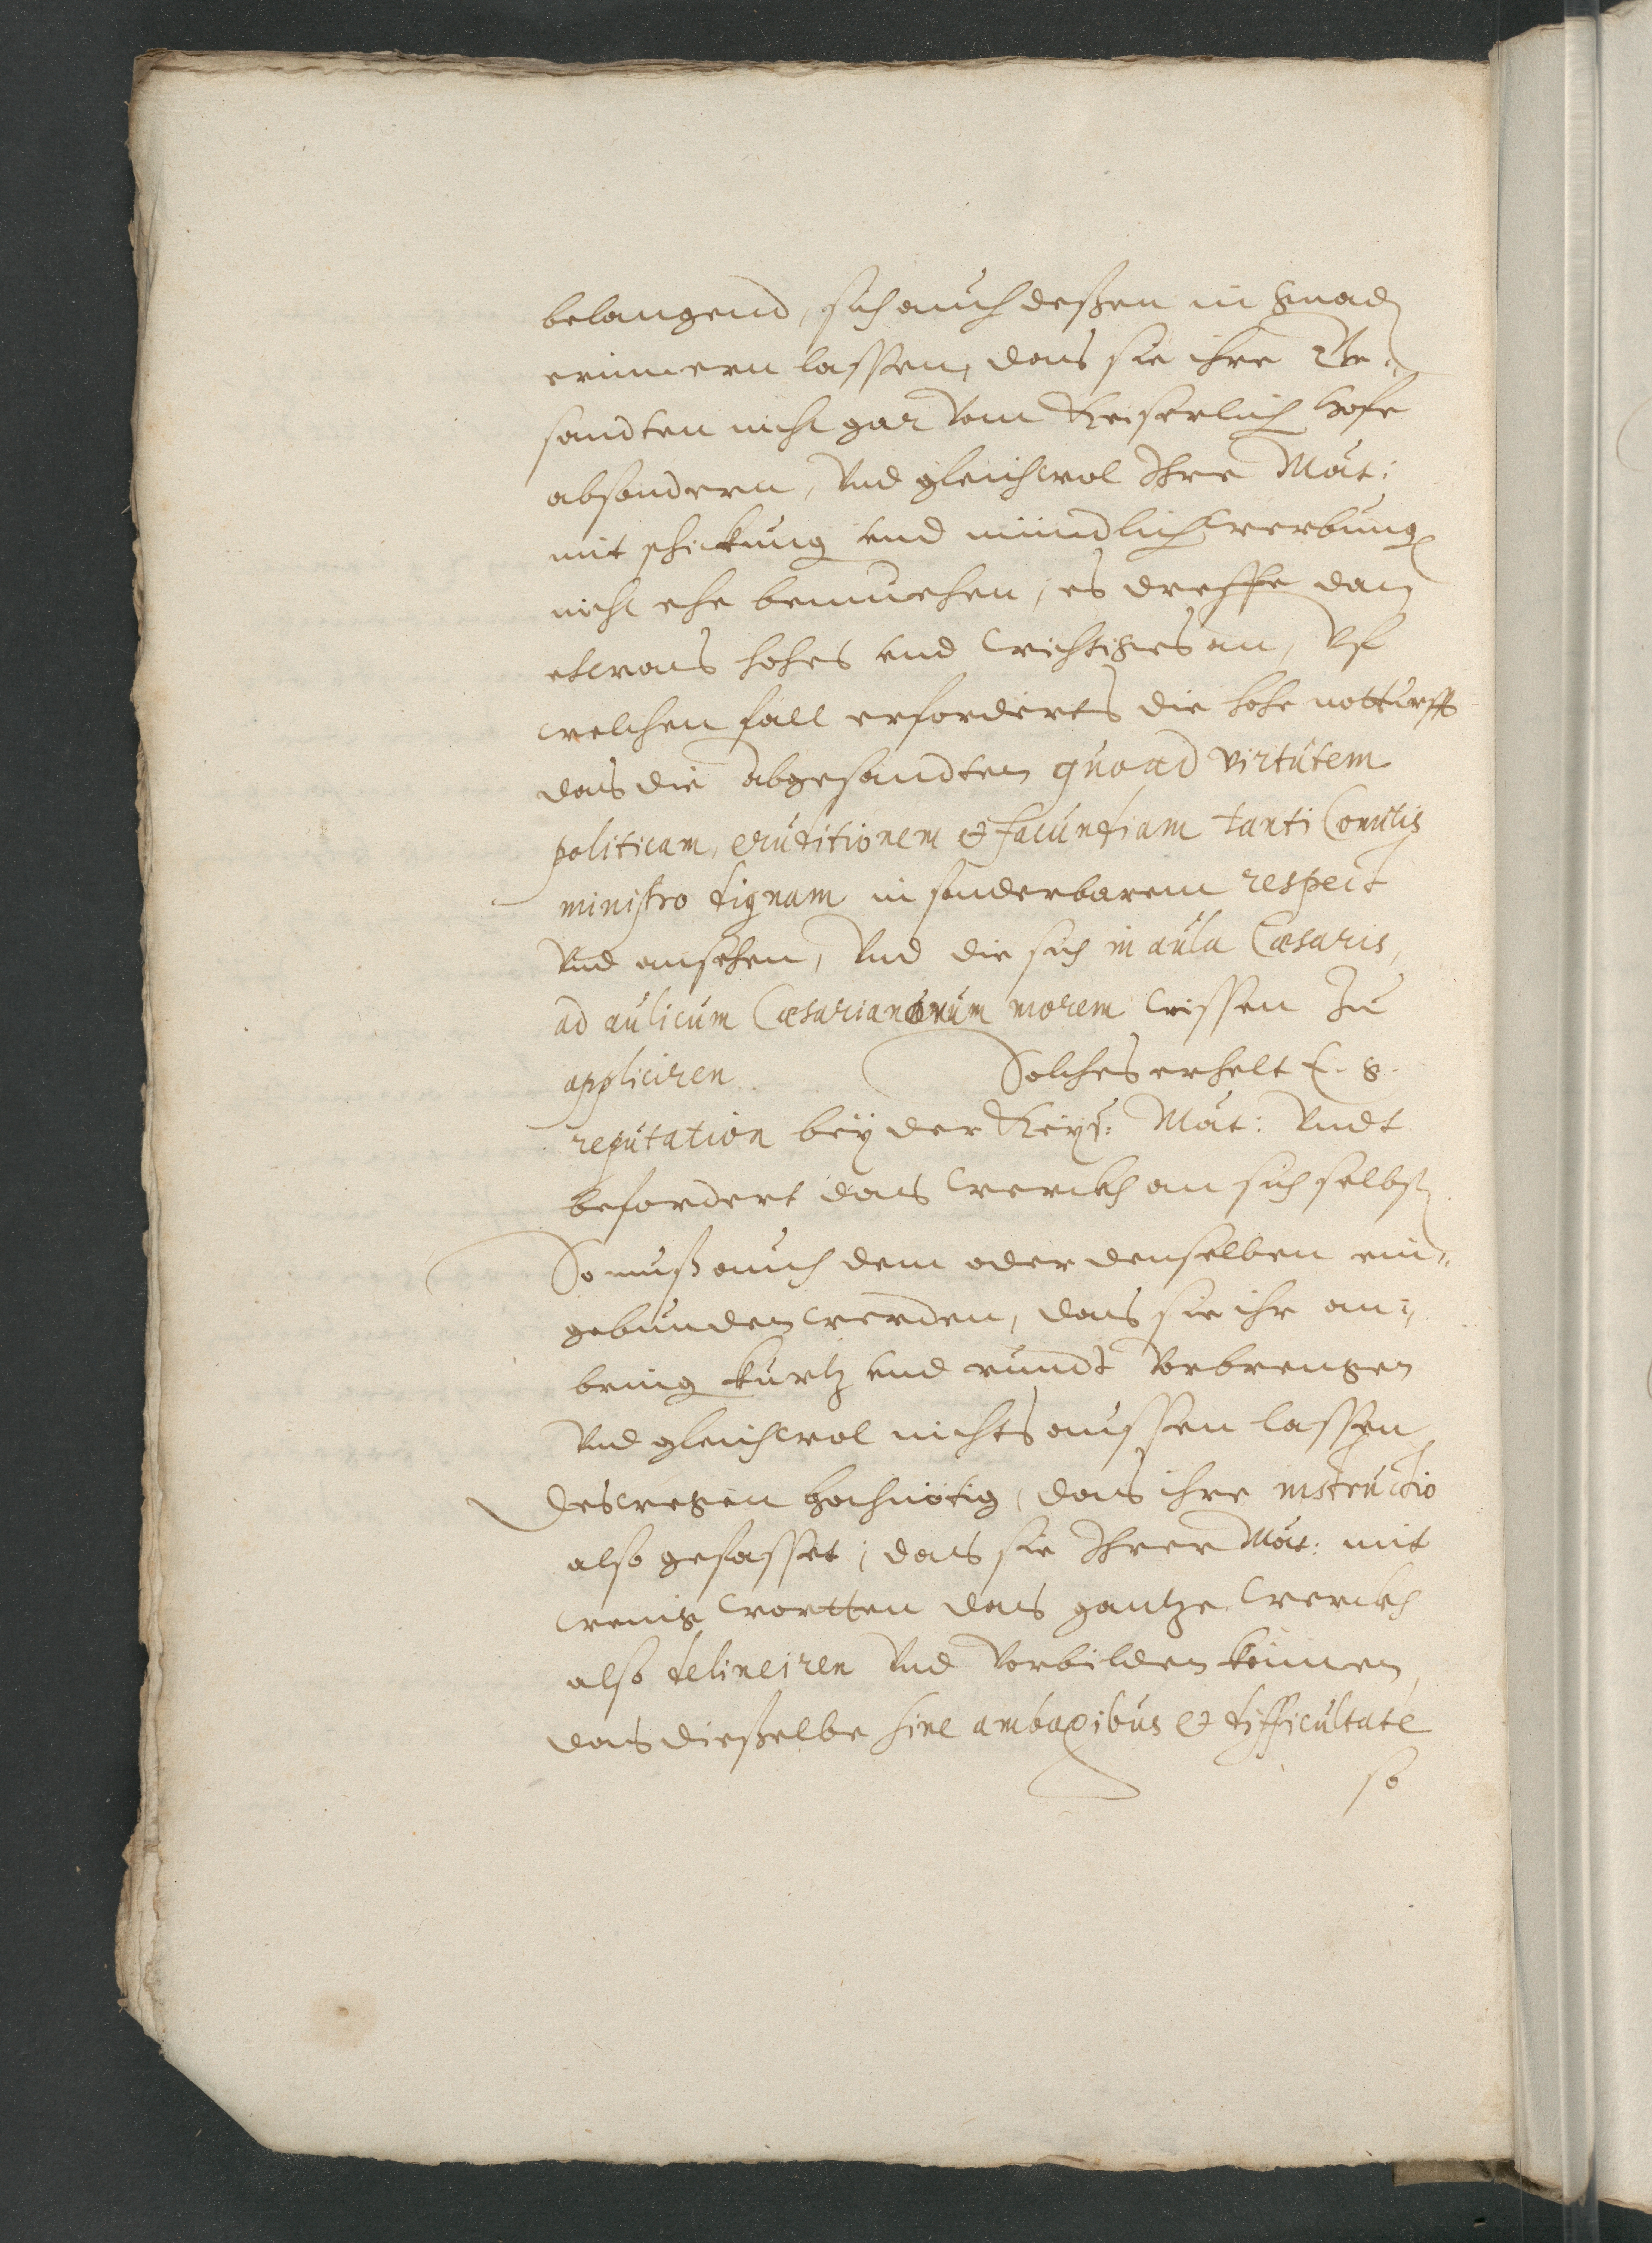 belangend, sich auch deßen in gnad
erinnern lassen, das sie ihre Ge„
sandten nicht gar vom Keiserlich Hofe
absondern, vnd gleichwol Ihre Mat:
mit schickung vnd mündlich werbung
nicht ehe bemuehen, es dreffe dan
etwas hohes vnd wichtiges an, Vf
welchen fall erfordert die hohe notturfft
das die Abgesandten quoad virtutem
politicam, eruditionem et facundiam tanti Comitis
ministro dignam in sonderbarem respect
vnd ansehen, vnd die sich in aula Cæsaris,
ad aulicum Cæsarianorum morem wissen zu
appliciren. Solches erhelt E. g.
reputation beÿ der Keÿs: Mat: vndt
befordert das werckh an sich selbst
So muß auch dem oder denselben ein„
gebunden werden, das sie ihr an„
bring kurtz vnd rundt vorbrengen
vnd gleichwol nichts aussen lassen
Deswegen hochnötig, das ihre instructio
also gefasset, das sie Ihrer Mat: mit
wenig wortten das gantze werckh
also delineiren vnd vorbilden können,
das dießelbe sine ambagibus et difficultate
so